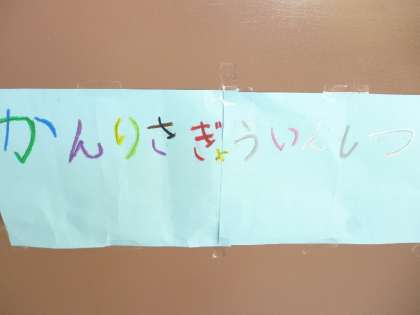 かんりさぎょういんしつ